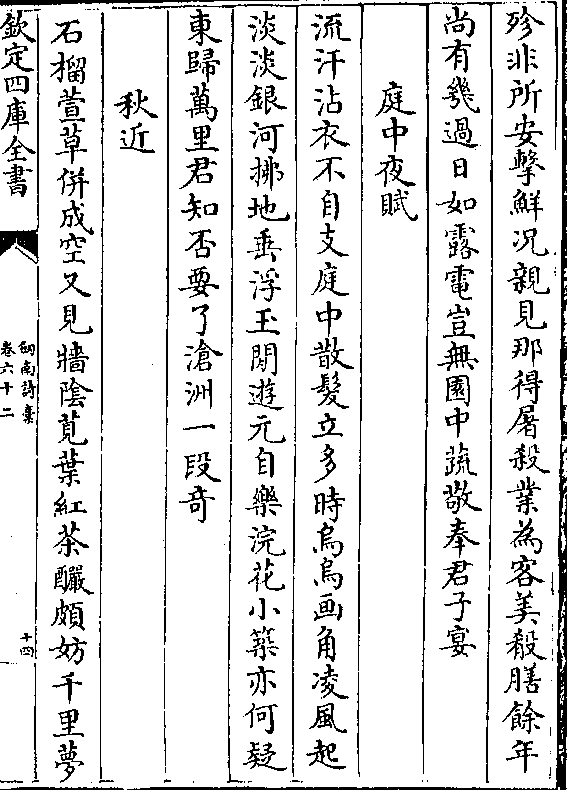 殄非所安擊鮮况親見那得屠殺業為客美殽膳餘年
尚有幾過日如露電豈無園中蔬敬奉君子宴
庭中夜賦
流汗沾衣不自支庭中散髮立多時烏烏画角凌風起
淡淡銀河拂地垂浮玉閒遊元自樂浣花小築亦何疑
東歸萬里君知否要了滄洲一段竒
秋近
石榴萱草併成空又見牆陰莧葉紅茶釅頗妨千里夢
欽定四庫全書
劍南詩藁
卷六十二
十四